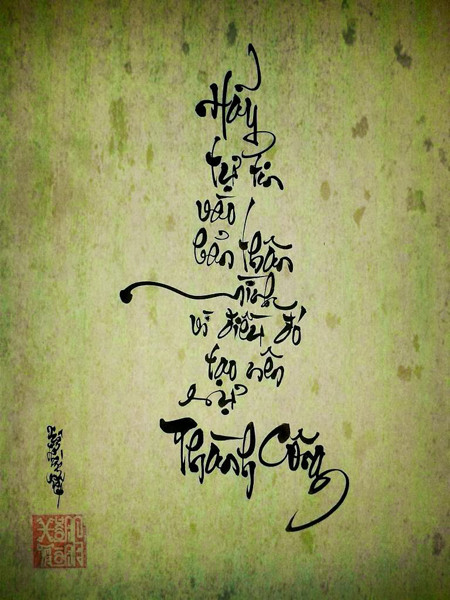 Hãy
tự tin
vào
bản thân
mình
vì điều đó
tạo nên
sự
Thành Công